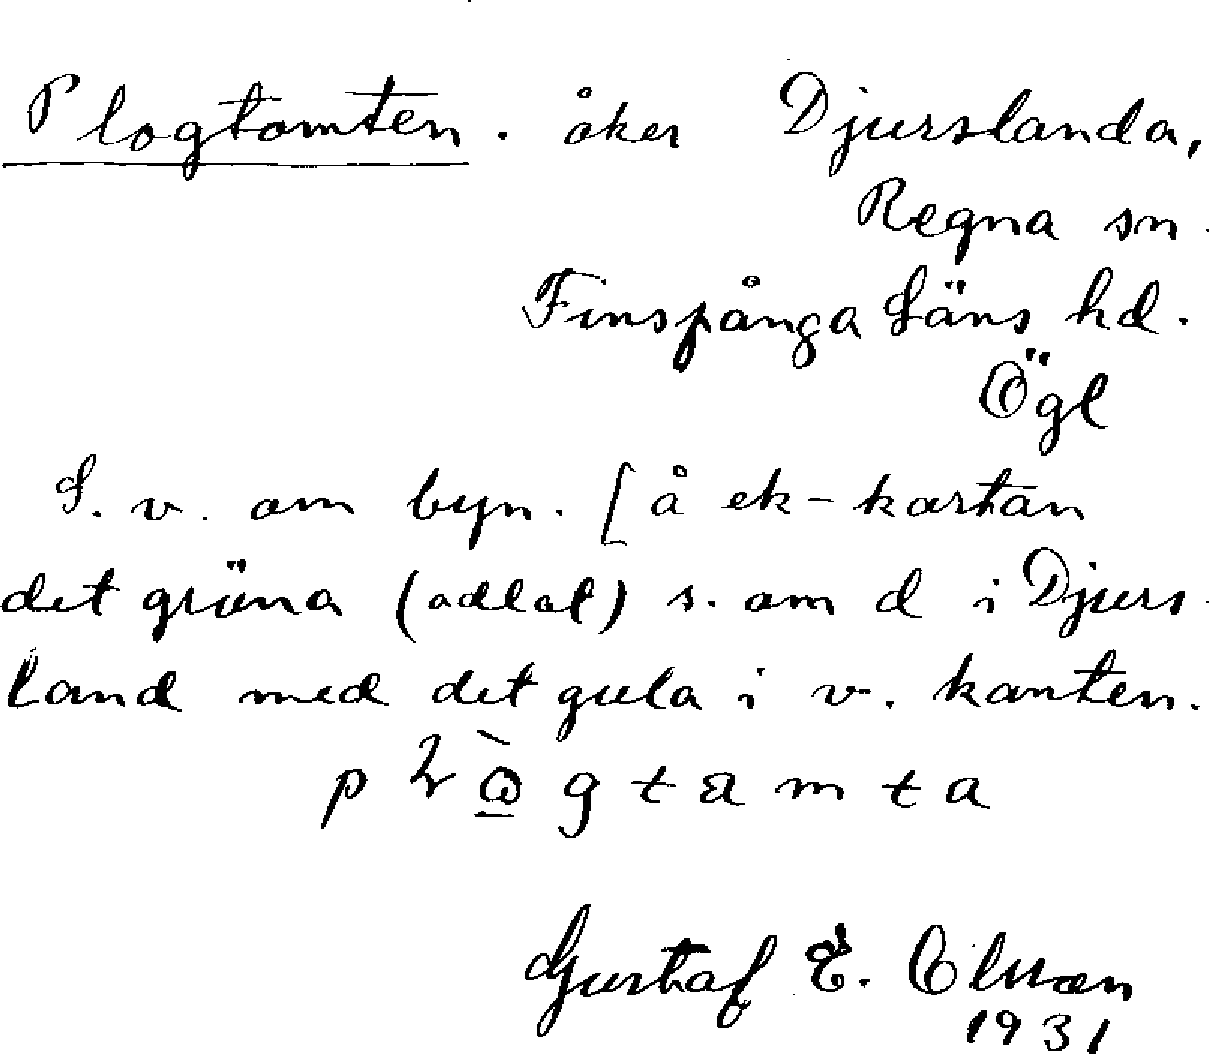 Plogtomten. åker Djurslanda,
Regna sn.
Finspånga Läns hd.
Ögl
S. v. om byn. [å ek-kartan
det gröna (adlat) s. om d i Djurs-
land med det gula i v. kanten.
Gustaf E. Olsson
1931